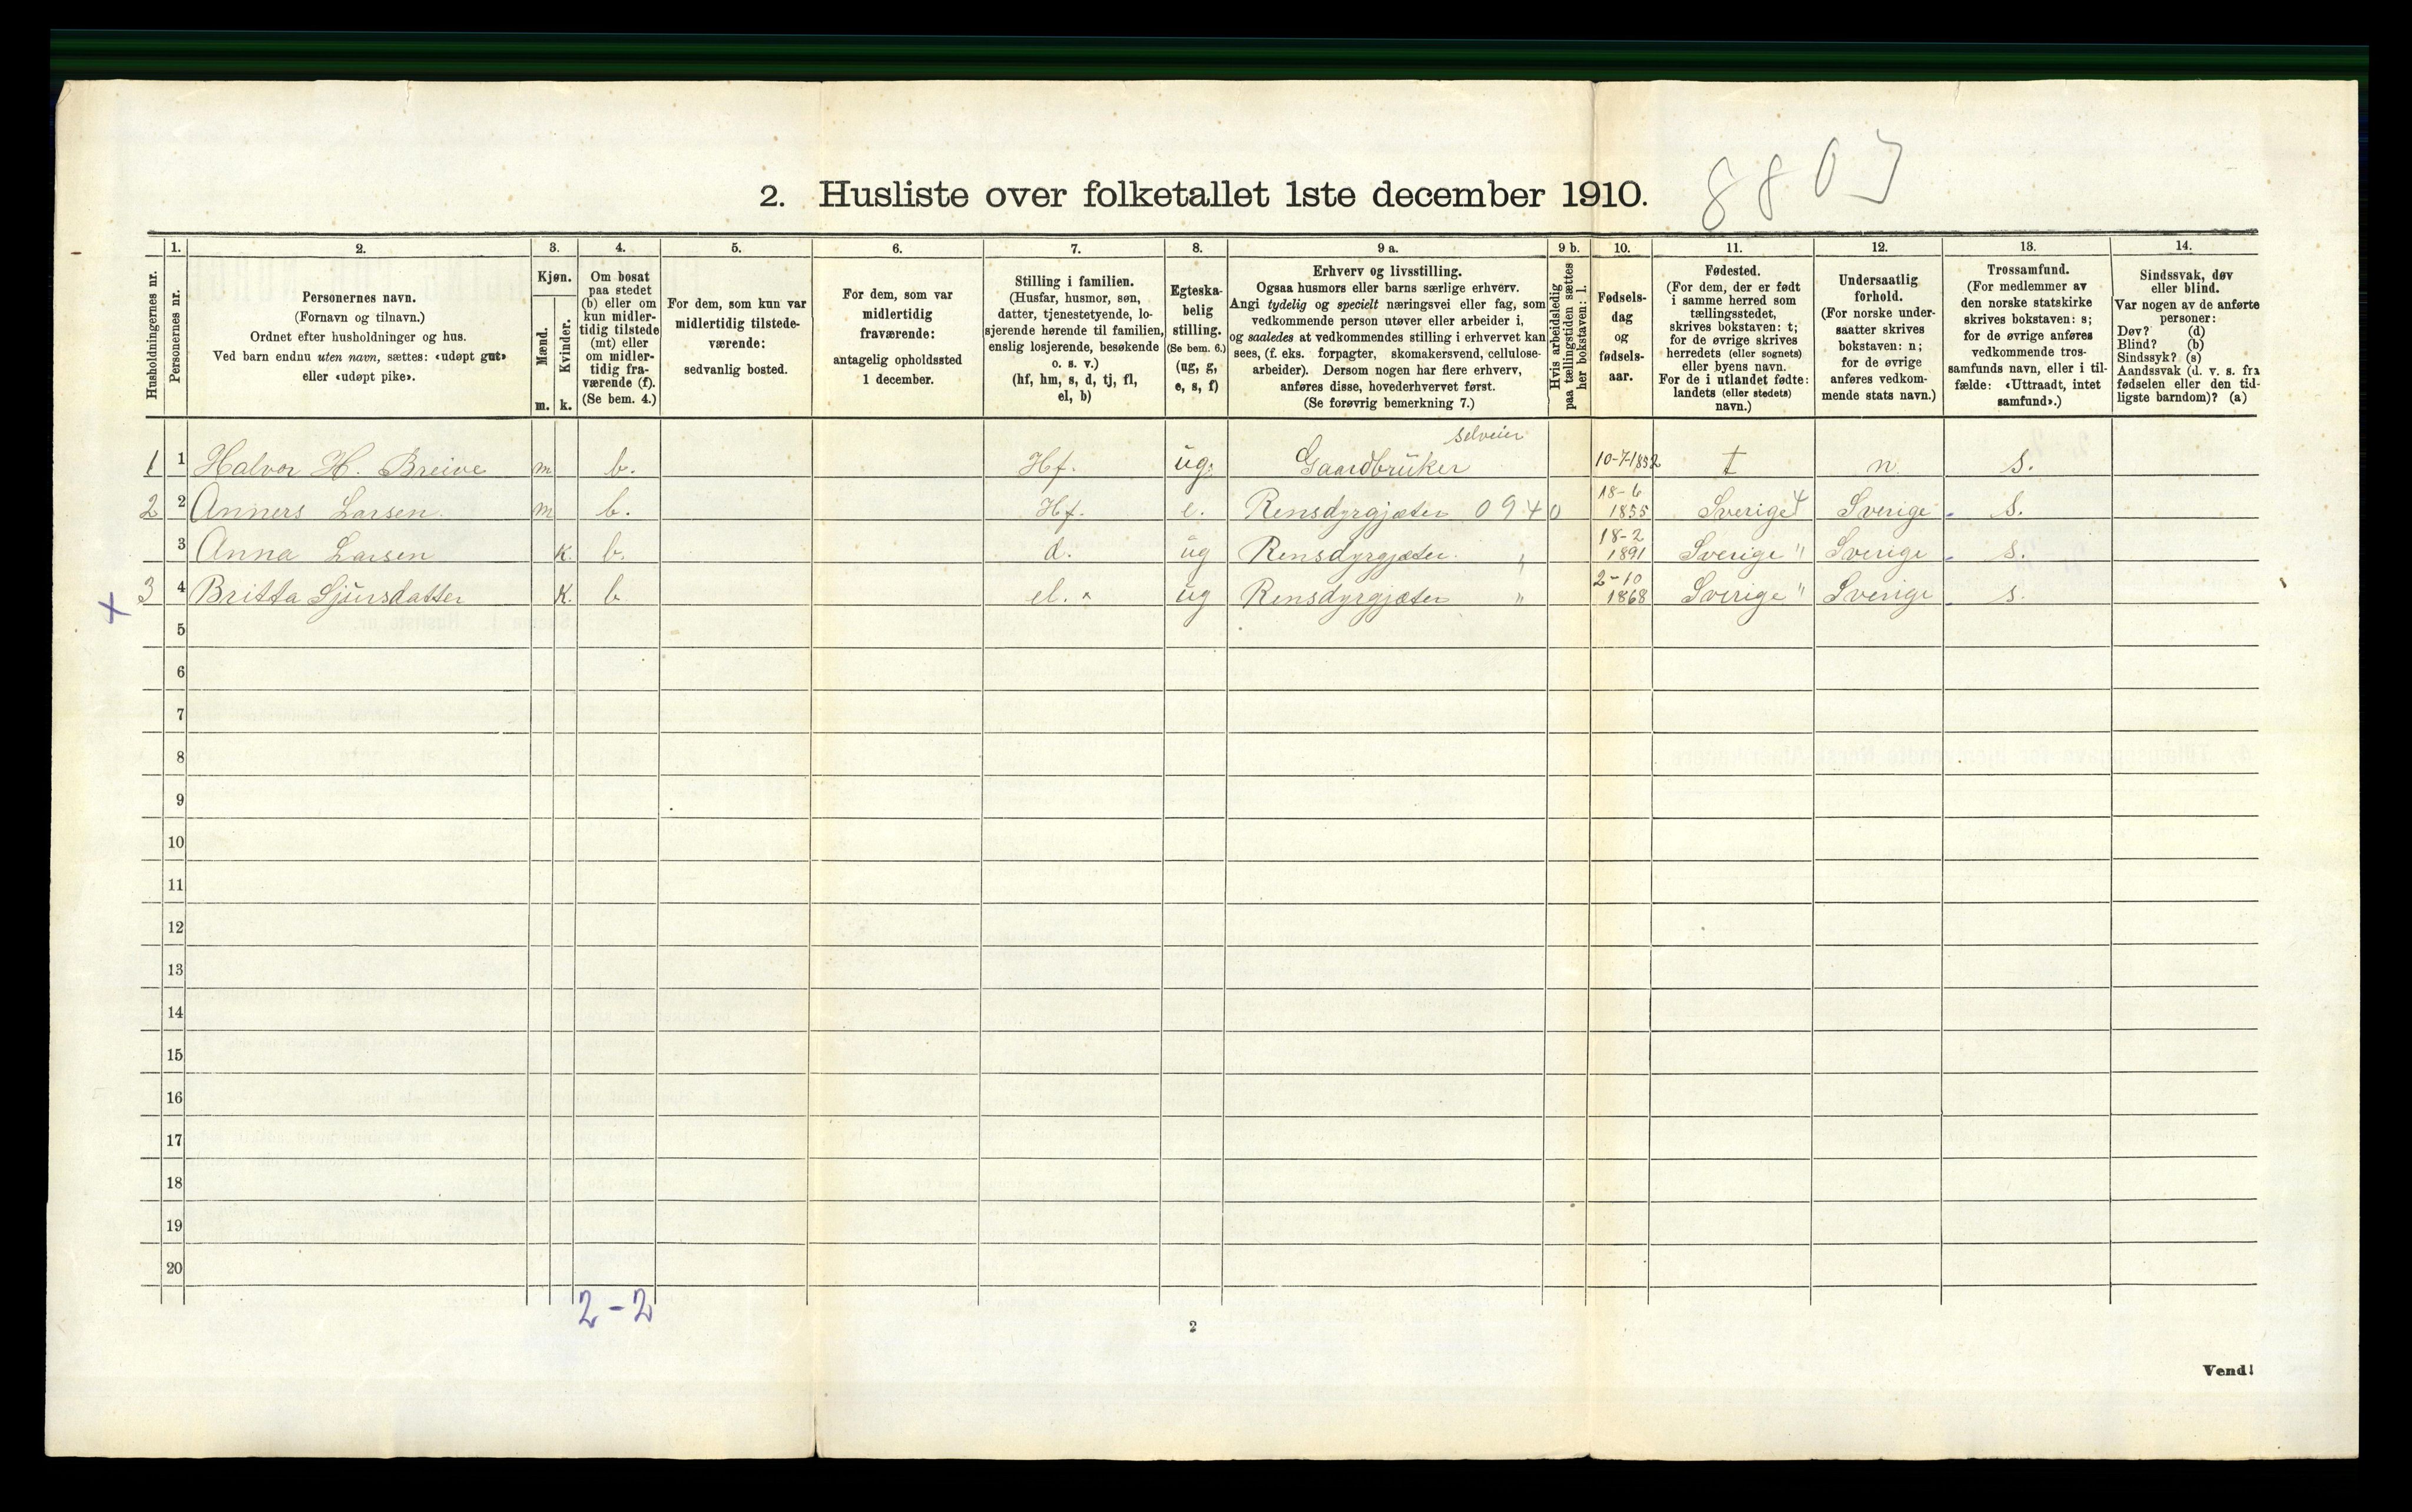 8807
2. Husliste over folketallet 1ste december 1910.
Husholdningernes nr.
1.
Personernes nr.
2.
Personernes navn.
(Fornavn og tilnavn.)
Ordnet efter husholdninger og hus.
Ved barn endnu uten navn, sættes: «udøpt gut»
eller «udøpt pike».
3.
Kjøn.
Mænd.
Kvinder.
m. k.
4.
Om bosat
paa stedet
(b) eller om
kun midler-
tidig tilstede
(mt) eller
om midler-
tidig fra-
værende (f).
(Se bem. 4.)
5.
For dem, som kun var
midlertidig tilstede-
værende:
sedvanlig bosted.
6.
For dem, som var
midlertidig
fraværende:
antagelig opholdssted
1 december.
7.
Stilling i familien.
(Husfar, husmor, søn,
datter, tjenestetyende, lo-
sjerende hørende til familien,
enslig losjerende, besøkende
o. s. v.)
(hf, hm, s, d, tj, fl,
el, b)
8.
Egteska-
belig
stilling.
(Se bem. 6.)
(ug, g,
e, s, f)
9 a.
Erhverv og livsstilling.
Ogsaa husmors eller barns særlige erhverv.
Angi tydelig og specielt næringsvei eller fag, som
vedkommende person utøver eller arbeider i,
og saaledes at vedkommendes stilling i erhvervet kan
sees, (f. eks. forpagter, skomakersvend, cellulose-
arbeider). Dersom nogen har flere erhverv,
anføres disse, hovederhvervet først.
(Se forøvrig bemerkning 7.)
9 b.
Hvis arbeidsledig
paa tællingstiden sættes
her bokstaven: l.
10.
Fødsels-
dag
og
fødsels-
aar.
11.
Fødested.
(For dem, der er født
i samme herred som
tællingsstedet,
skrives bokstaven: t;
for de øvrige skrives
herredets (eller sognets)
eller byens navn.
For de i utlandet fødte:
landets (eller stedets)
navn.)
12.
Undersaatlig
forhold.
(For norske under-
saatter skrives
bokstaven: n;
for de øvrige
anføres vedkom-
mende stats navn.)
13.
Trossamfund.
(For medlemmer av
den norske statskirke
skrives bokstaven: s;
for de øvrige anføres
vedkommende tros-
samfunds navn, eller i til-
fælde: «Uttraadt, intet
samfund».)
14.
Sindssvak, døv
eller blind.
Var nogen av de anførte
personer:
Døv? (d)
Blind? (b)
Sindssyk? (s)
Aandssvak (d. v. s. fra
fødselen eller den tid-
ligste barndom)? (a)
selveier
1 1 Halvor H. Breive m b. Hf. ug. Gaardbruker 10-7-1852 t n s.
2 2 Anners Larsen. m b. Hf. e. Rensdyrgjæter 0940 18-6 1855 Sverige 4 Sverige s.
3 Anna Larsen K. b. d. ug Rensdyrgjæter. " 18-2 1891 Sverige " Sverige s.
+ 3 4 Britta Sjursdatter K. b. el. × ug Rensdyrgjæter " 2-10 1868 Sverige " Sverige s.
5
6
7
8
9
10
11
12
13
14
15
16
17
18
19
20
2-2
2
Vend!